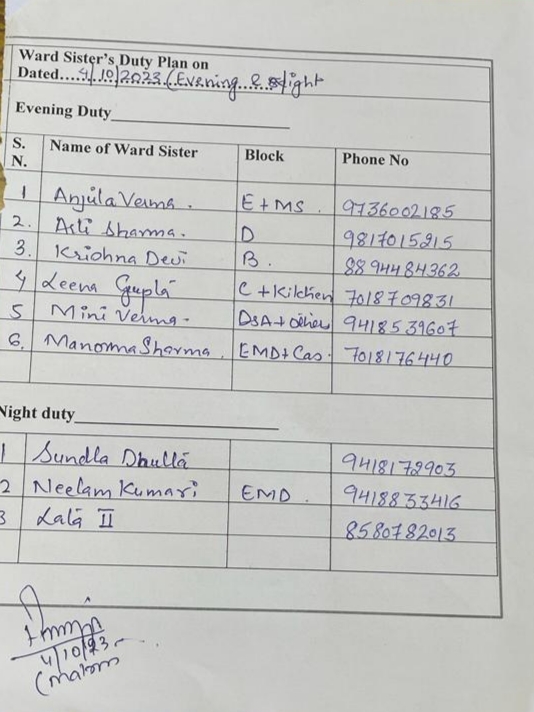 Ward Sister's Duty Plan on
Dated....4/10/2023 (Evening & Night
Evening Duty
S. N. Name of Ward Sister Block Phone No
1 Anjula Verma. E+MS. 9736002185
2. Arti Sharma. D 9817015215
3. Krishna Devi B. 8894484362
4 Leena Gupta C+Kitchen 7018709831
5 Mini Verma- DSA+other 9418539607
6. Manorma Sharma. EMD+Cas. 7018176440
Night duty
1 Sundla Dhulla 9418172903
2 Neelam Kumari EMD. 9418833416
3 Lata II 8580782013
4/10/23
(Matron